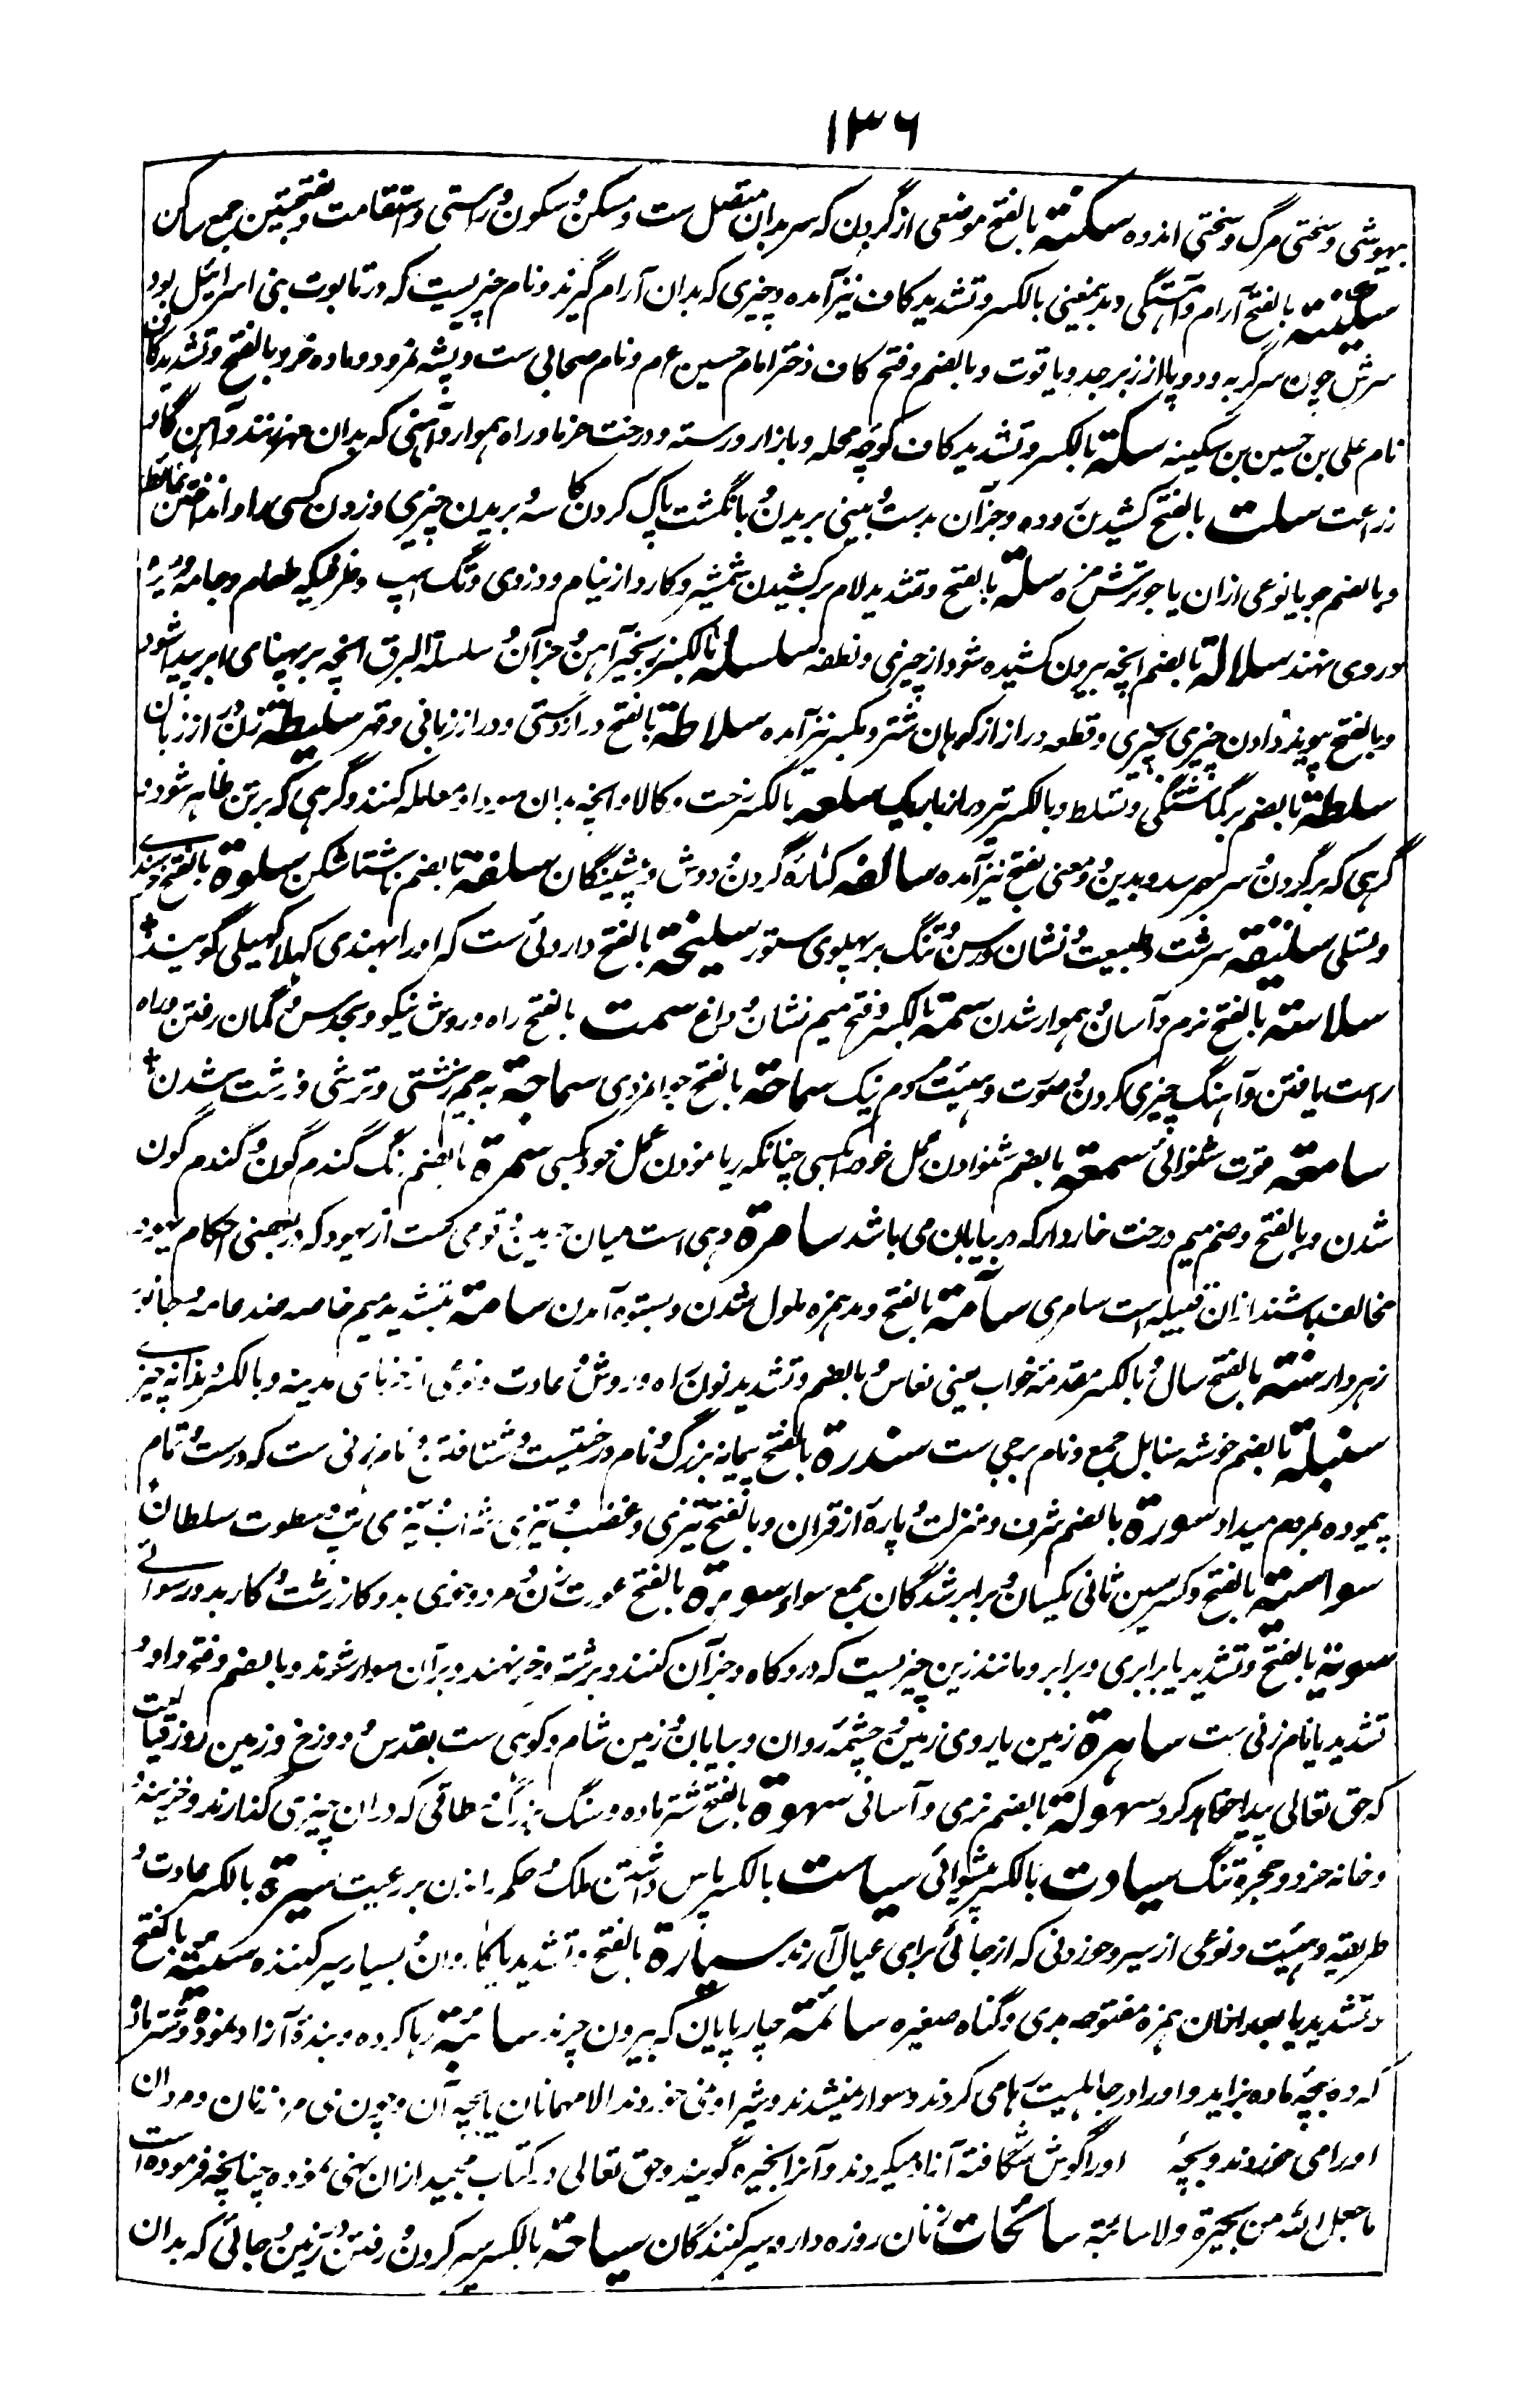 ۱۳۶
بیهوشی و سختی مرگ و سختی اندوه سکنة بالفتح موضعی از گردن که سر بدان متصل ست و مسکن و سکون و راستی و استقامت و بفتحتین جمع ساکن
سکینة بالفتح آرام و آهستگی و بدینمعنی بالکسر و تشدید کاف نیز آمده و چیزی که بدان آرام گیرند و نام چیزیست که در تابوت بنی اسرائیل بود
سرش چون سر گربه و دو پا از زبرجد و یاقوت و بالضم و فتح کاف دختر امام حسین ع م و نام صحابی ست و پشه نمرود و ماده خر و بالفتح و تشدید کاف
نام علی بن حسین بن سکینه سکة بالکسر و تشدید کاف کوچه محله و بازار و رسته و درخت خرما و راه هموار و آهنی که بدان مهر زنند و آهن گاو
زراعت سلت بالفتح کشیدن روده و جز آن بدست و بینی بریدن و بانگشت پاک کردن کاسه و بریدن چیزی و زدن کسی را و انداختن غائط
و بالضم جو یا نوعی ازان یا جو ترش مزه سلة بالفتح و تشدید لام برکشیدن شمشیر و کارد از نیام و دزدی و تگ اسپ و ظرفیکه طعام و جامه و غیره
در وی نهند سلالة بالضم آنچه بیرون کشیده شود از چیزی و نطفه سلسله بالکسر زنجیر آهن و جز آن و سلسلة البرق آنچه بر پهنای ابر پیدا شود
و بالفتح پیوند دادن چیزی بچیزی و قطعه دراز از کوهان شتر و بکسر نیز آمده سلاطة بالفتح درازدستی و دراززبانی و قهر سلیطة زن دراز زبان
سلطة بالضم برگماشتگی و تسلط و بالکسر تیر دراز باریک سلعه بالکسر رخت و کالا و آنچه بدان سودا و معامله کنند و گرهی که بر تن ظاهر شود و
گرهی که بر گردن و سر بهم رسد و بدین معنی بفتح نیز آمده سالفه کنارهٔ گردن و دوش و پیشینگان سلفة بالضم ناشتا شکن سلوة بالفتح خرسندی
و تسلی سلیقه سرشت و طبیعت و نشان رسن و تنگ بر پهلوی ستور سلیخة بالفتح داروئی ست که او را بهندی کهلا کهیلی گویند
سلاسة بالفتح نرم و آسان و هموار شدن سمة بالکسر و فتح میم نشان و داغ سمت بالفتح راه و روش نیکو و بحدس و گمان رفتن و راه
راست یافتن و آهنگ چیزی کردن و صورت و هیئت مردم نیک سماحة بالفتح جوانمردی سماجة به جیم زشتی و ترشی و زشت شدن
سامعه قوت شنوائی سمعة بالضم شنوادن عمل خود بکسی چنانکه ریا نمودن عمل خود بکسی سمرة بالضم رنگ گندم گون و گندم گون
شدن و بالفتح و ضم میم درخت خاردار که در بیابان می باشد سامرة دهی است میان حرمین و قومی ست از یهود که در بعضی احکام یهود
مخالف باشند ازان قبیله است سامری سآمة بالفتح و مد همزه ملول شدن و بستوه آمدن سامة بتشدید میم خاصه ضد عامه و جانور
زهردار سنة بالفتح سال و بالکسر مقدمه خواب یعنی نعاس و بالضم و تشدید نون راه و روش و عادت و نوعی از خرمای مدینه و بالکسر
سنبلة بالضم خوشه سنابل جمع و نام برجی ست سندرة بالفتح پیمانه بزرگ و نام درختیست و شتافتن و نام زنی ست که درست و تمام
پیموده بمردم میداد سورة بالضم شرف و منزلت و پاره از قران و بالفتح تیزی و غضب و تیزی شراب و تیزی تپ و سطوت سلطان
سواسیة بالفتح و کسر سین ثانی یکسان و برابر شدگان جمع سواء سوءة بالفتح عورت زن و مرد و خوی بد و کار زشت و کار بد و رسوائی
سویة بالفتح و تشدید یا برابری و برابر و مانند زین چیزیست که در و کاه و جز آن کنند و بر شتر و خر نهند و بران سوار شوند و بالضم و فتح واو و
تشدید یا نام زنی ست ساهرة زمین یا روی زمین و چشمهٔ روان و بیابان و زمین شام و کوهی ست بقدس و دوزخ و زمین روز قیامت
که حق تعالی پیدا خواهد کرد سهولة بالضم نرمی و آسانی سهوة بالفتح شتر ماده و سنگ بزرگ و طاقی که دران چیزی گذارند و خزینه
و خانه خرد و حجره تنگ سیادت بالکسر پیشوائی سیاست بالکسر پاس داشتن ملک و حکم راندن بر رعیت سیرة بالکسر عادت و
طریقه و هیئت و نوعی از سیر و خوردنی که از جائی برای عیال آرند سیارة بالفتح و تشدید یا کاروان و بسیار سیر کننده سیئة بالفتح
و تشدید یا بعد ازان همزه مفتوحه بدی و گناه صغیره سائمة چارپایان که بیرون چرند سائبة رها کرده و بندهٔ آزاد نموده و شتر ماده
که ده بچهٔ ماده بزاید و او را در جاهلیت رها می کردند و سوار نمیشدند و شیر او نمی خوردند الا مهمانان یا بچه آن و چون می مرد زنان و مردان
او را می خوردند و بچهٔ او را گوش شگافته آزاد میکردند و آنرا بحیره گویند و حق تعالی در کتاب مجید ازان نهی نموده چنانچه فرموده است
ما جعل الله من بحیرة ولا سائبة سائحات زنان روزه دار و سیر کنندگان سیاحة بالکسر سیر کردن و رفتن و زمین و جائی که بدان